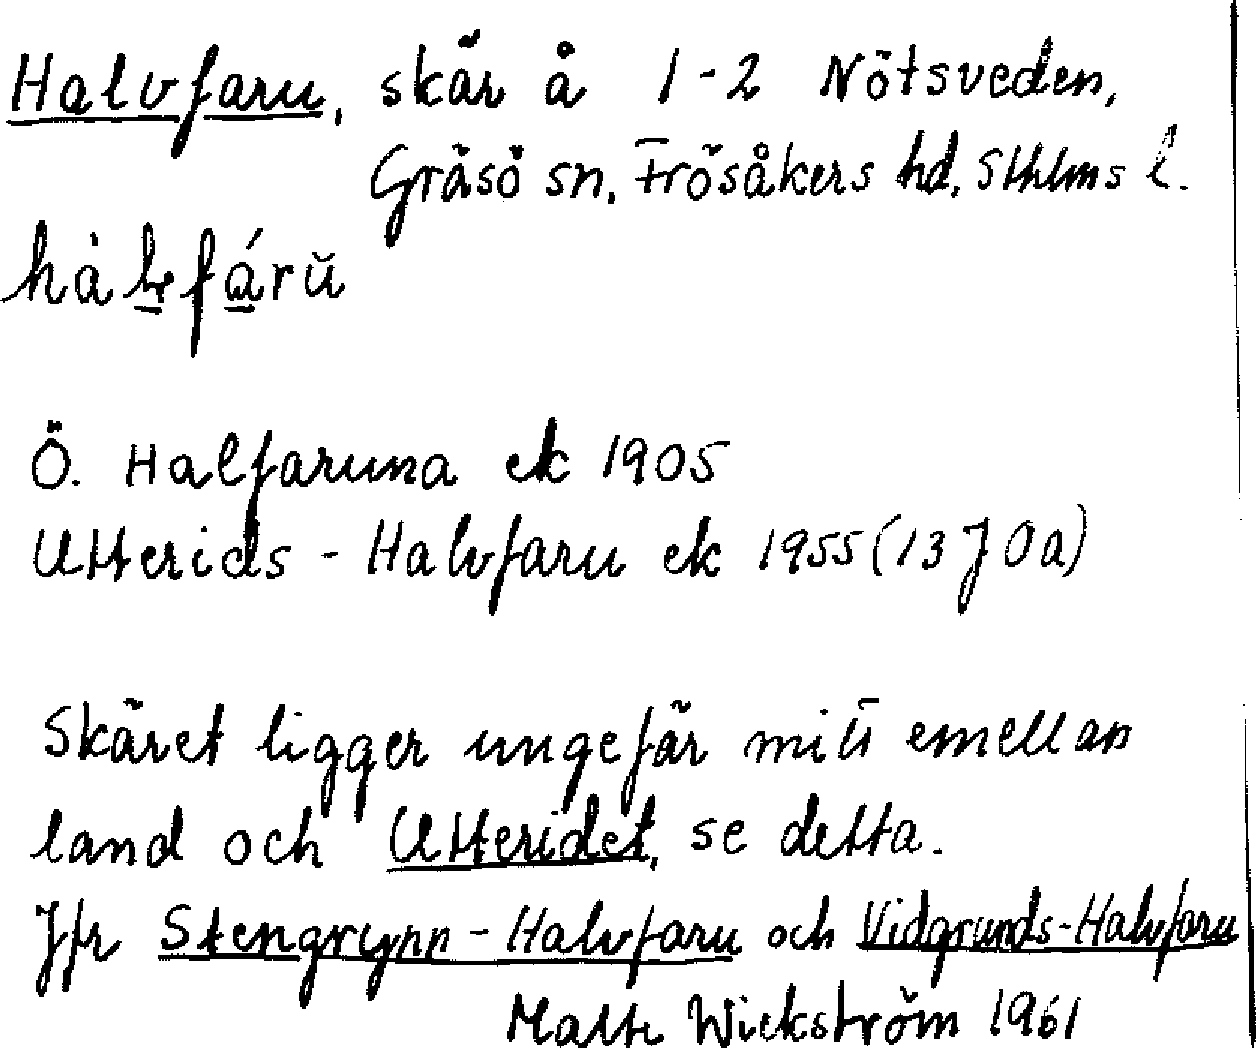 Halvfaru, skär å 1-2 Nötsveden,
Gräsö sn, Frösåkers hd, Sthlms l.
Ö. Halfaruna ek 1905
Utterids - Halvfaru ek 1955 (13 J 0a)
Skäret ligger ungefär mitt emellan
land och Utteridet, se detta.
Jfr Stengrynn - Halvfaru och Vidgrunds-Halvfaru
Malte Wickström 1961